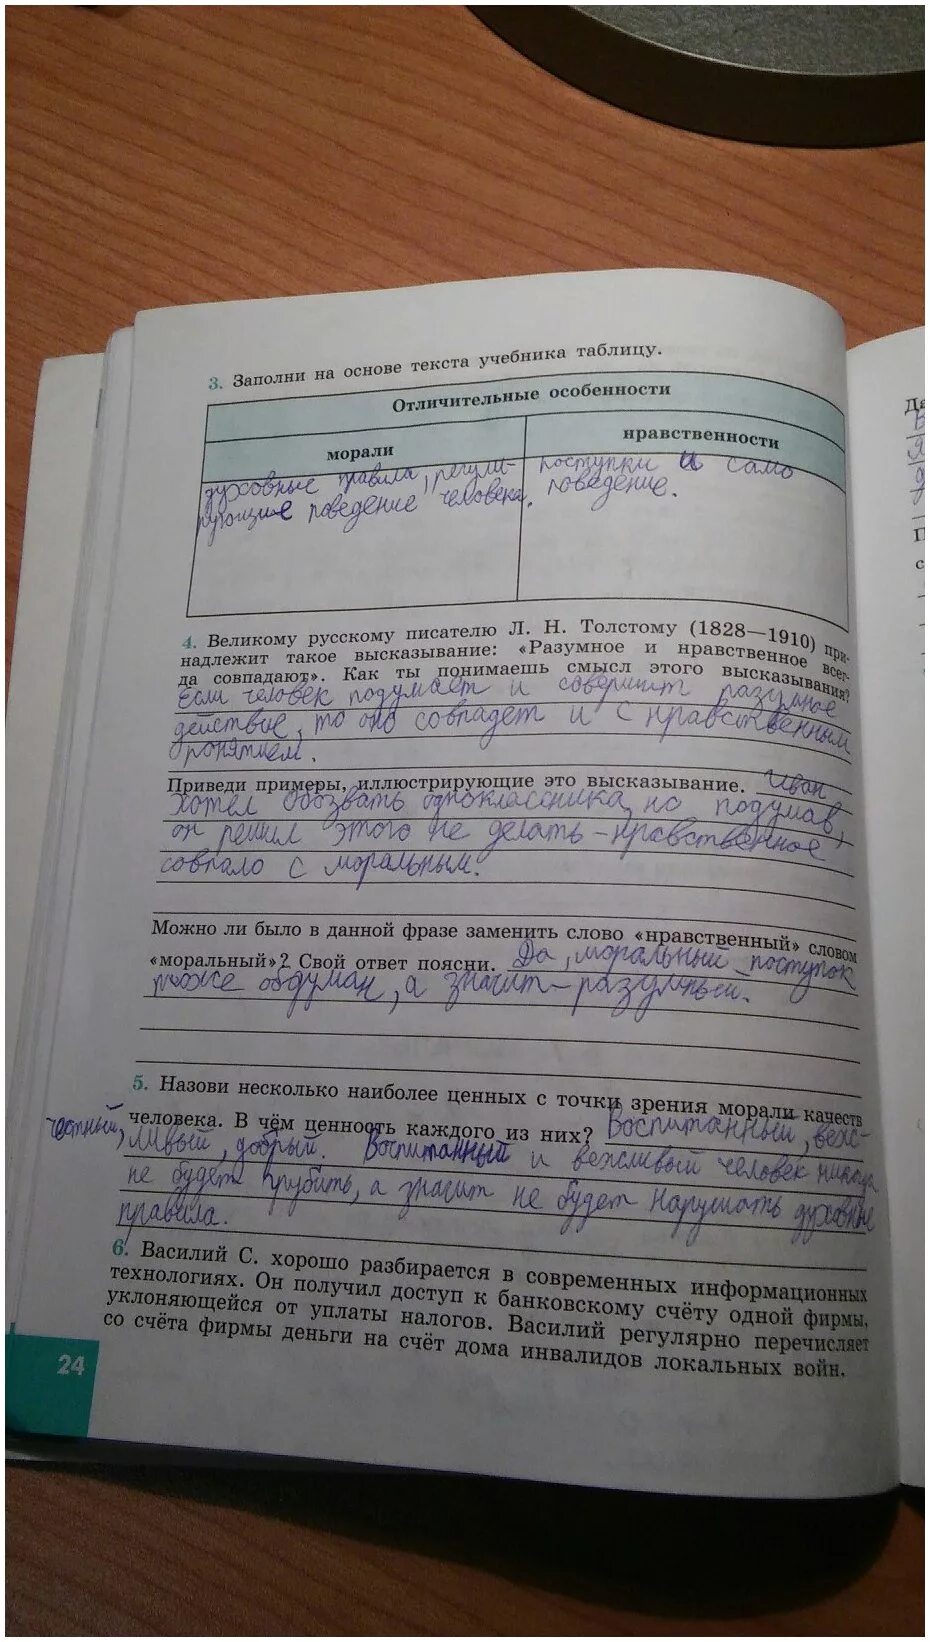 3. Заполни на основе текста учебника таблицу.
Отличительные особенности
морали
нравственности
духовные правила, регули-
рующие поведение человека.
поступки и само
поведение.
4. Великому русскому писателю Л. Н. Толстому (1828—1910) при-
надлежит такое высказывание: «Разумное и нравственное всег-
да совпадают». Как ты понимаешь смысл этого высказывания?
Если человек подумает и совершит разумное
действие, то оно совпадет и с нравственным
понятием.
Приведи примеры, иллюстрирующие это высказывание. Иван
хотел обозвать одноклассника, но подумав,
он решил этого не делать – нравственное
совпало с моральным.
Можно ли было в данной фразе заменить слово «нравственный» словом
«моральный»? Свой ответ поясни. Да, моральный поступок
тоже обдуман, а значит – разумный.
5. Назови несколько наиболее ценных с точки зрения морали качеств
человека. В чём ценность каждого из них? Воспитанный, веж-
честный, ливый, добрый. Воспитанный и вежливый человек никогда
не будет грубить, а значит не будет нарушать духовные
правила.
6. Василий С. хорошо разбирается в современных информационных
технологиях. Он получил доступ к банковскому счёту одной фирмы,
уклоняющейся от уплаты налогов. Василий регулярно перечисляет
со счёта фирмы деньги на счёт дома инвалидов локальных войн.
24